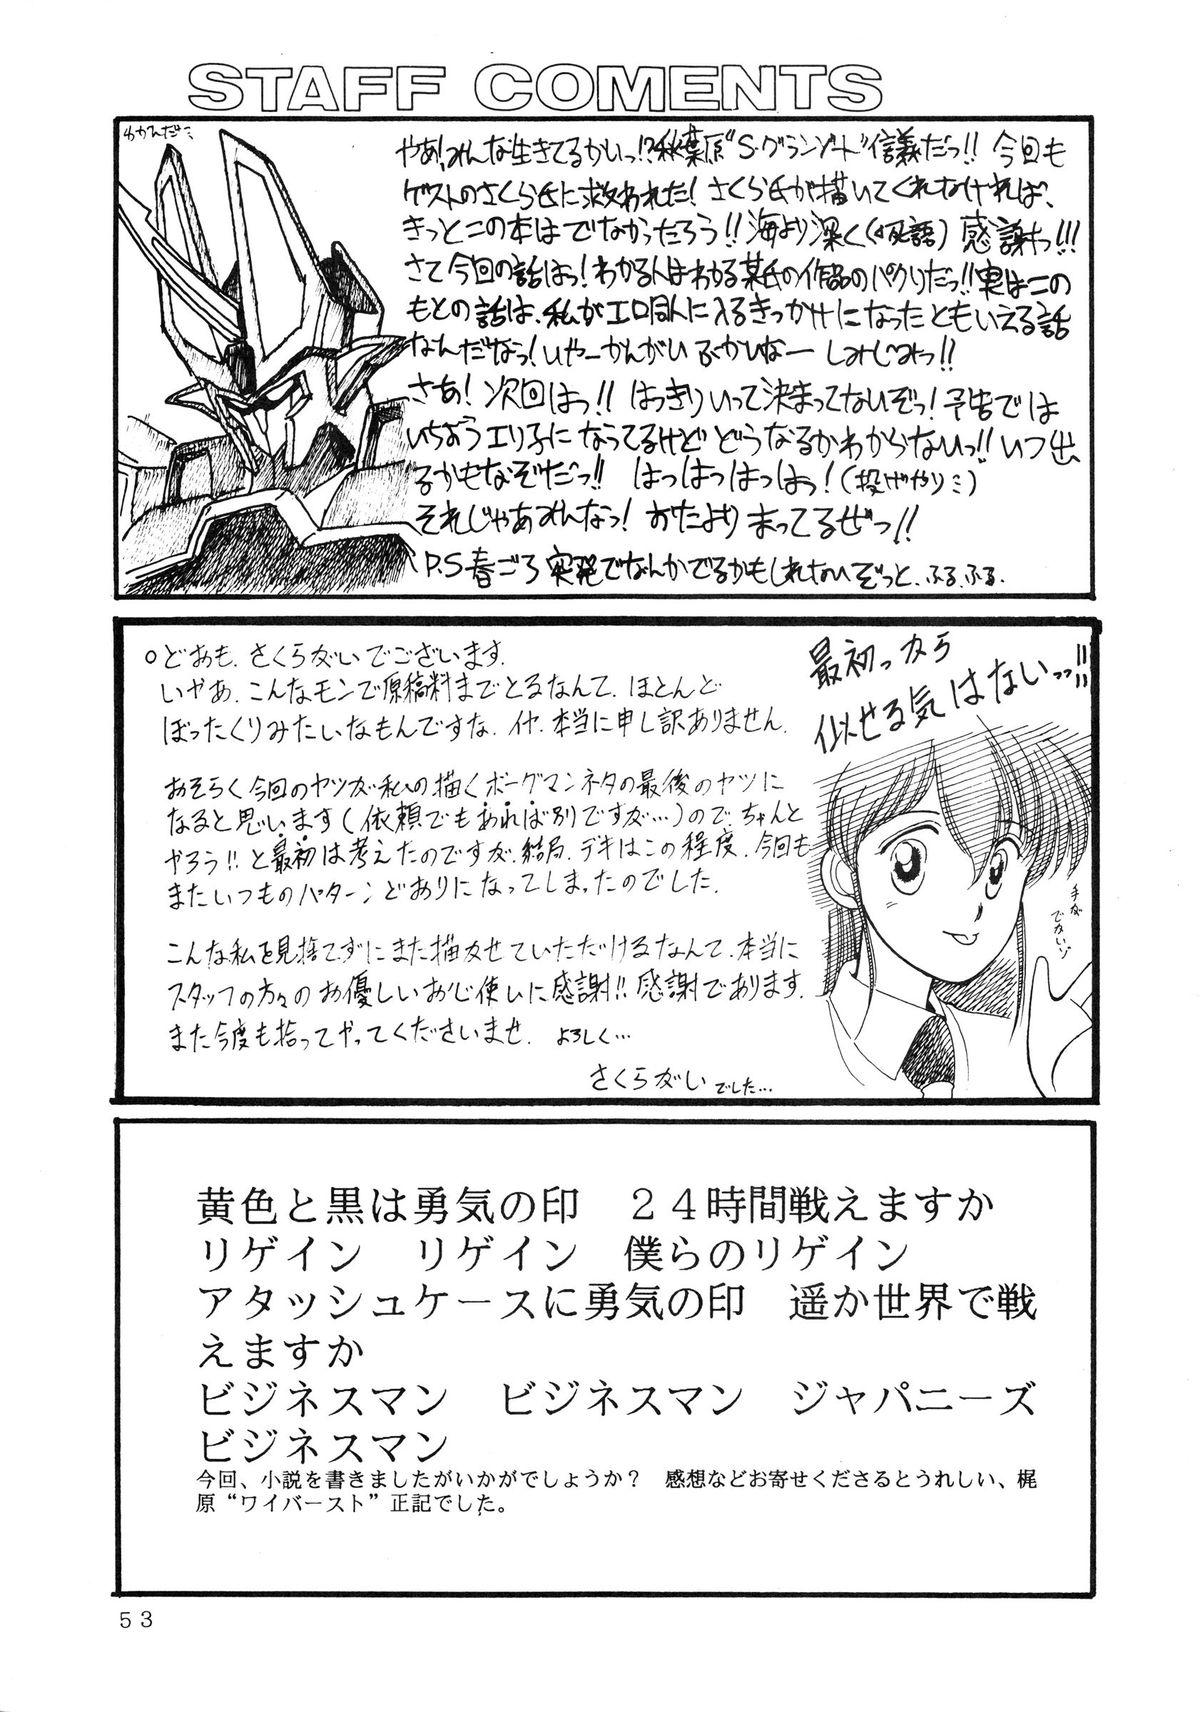 STAFF COMENTS
やあ!みんな生きてるかいっ!?秋葉原"S・グランゾート"信義だっ!! 今回も
ゲストのさくら氏に救われた! さくら氏が描いてくれなければ、
きっとこの本はでなかったろう!! 海より深く(死語) 感謝っ!!!
さて今回の話はっ! わかる人はわかる某氏の作品のパクリだっ!! 実はこの
もとの話は、私がエロ同人に入るきっかけになったともいえる話
なんだなっ! いやーかんがいぶかいなー しみじみっ!!
さあ! 次回はっ!! はっきりいって決まってないぞっ! 予告では
いちおうエリ子になってるけど どうなるかわからないっ!! いつ出
るかもなぞだっ!! はっはっはっはっ! (投げやりミ)
それじゃあみんなっ! おたよりまってるぜっ!!
P.S 春ごろ 突発でなんかでるかもしれないぞっと、ふる、ふる、
○どおも、さくらがいでございます。
いやあ、こんなモンで原稿料までとるなんて、ほとんど
ぼったくりみたいなもんですな、イヤ、本当に申し訳ありません。
おそらく今回のヤツが私の描くボーグマンネタの最後のヤツに
なると思います(依頼でもあれば別ですが…)ので、ちゃんと
やろう!! と最初は考えたのですが、結局、デキはこの程度、今回も
またいつものパターンどおりになってしまったのでした。
こんな私を見捨てずにまた描かせていただけるなんて、本当に
スタッフの方々のお優しいお心使いに感謝!! 感謝であります。
また今度も拾ってやってくださいませ、よろしく…
さくらがい でした…
最初っから
似せる気はないっっ!!
手が
でないゾ
黄色と黒は勇気の印　24時間戦えますか
リゲイン　リゲイン　僕らのリゲイン
アタッシュケースに勇気の印　遥か世界で戦
えますか
ビジネスマン　ビジネスマン　ジャパニーズ
ビジネスマン
今回、小説を書きましたがいかがでしょうか?　感想などお寄せくださるとうれしい、梶
原"ワイバースト"正記でした。
53